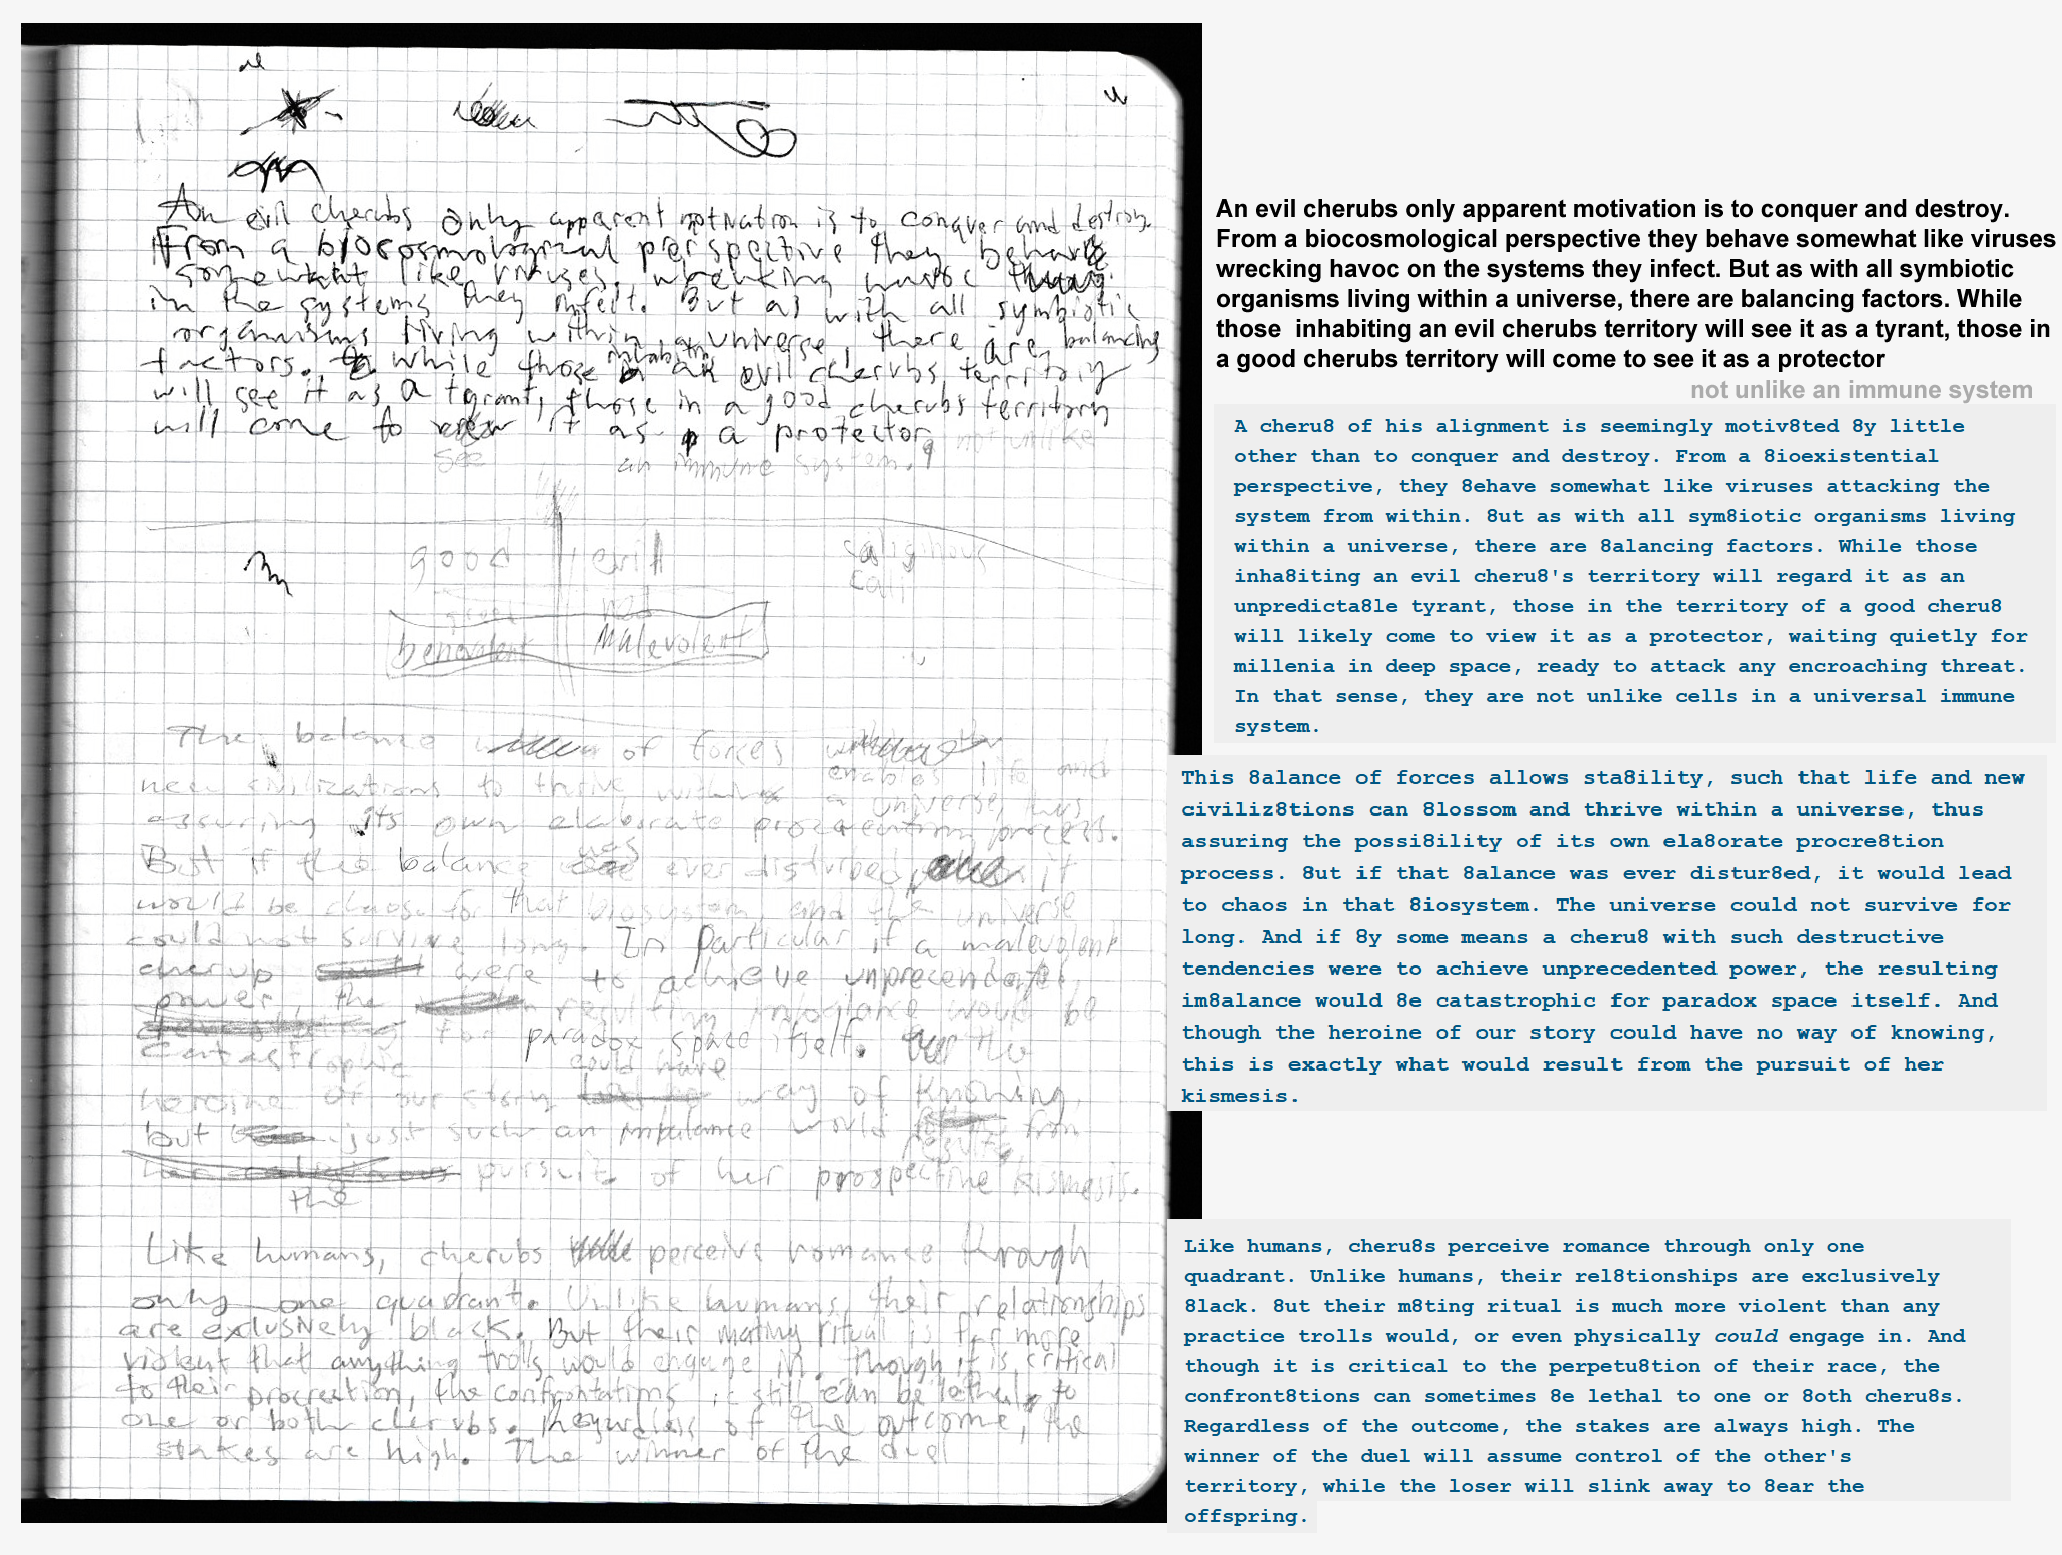 An evil cherubs only apparent motivation is to conquer and destroy.
From a biocosmological perspective they behave
somewhat like viruses, wreaking havoc
in the systems they infect. But as with all symbiotic
organisms living within a universe, there are balancing
factors. While those inhabiting an evil cherubs territory
will see it as a tyrant, those in a good cherubs territory
will come to view it as a protector, not unlike
see an immune system.
good evil caliginous
call
benevolent Malevolent
The balance of forces
enables life and
new civilizations to thrive within a universe, thus
assuring its own elaborate procreation process.
But if the balance was ever disturbed, it
would be chaos for that biosystem, and the universe
could not survive long. In particular if a malevolent
cherup were to achieve unprecendated
power, the resulting imbalance would be
for paradox space itself. the
catastrophic could have
heroine of our story way of knowing,
but just such an imbalance would from
result
pursuit of her prospective kismesis.
the
Like humans, cherubs perceive romance through
only one quadrant. Unlike humans, their relationships
are exclusively black. But their mating ritual is far more
violent that anything trolls would engage in. Though it is critical
to their procreation, the confrontations it still can be lethal to
one or both cherubs. Regardless of the outcome, the
stakes are high. The winner of the duel
An evil cherubs only apparent motivation is to conquer and destroy.
From a biocosmological perspective they behave somewhat like viruses
wrecking havoc on the systems they infect. But as with all symbiotic
organisms living within a universe, there are balancing factors. While
those inhabiting an evil cherubs territory will see it as a tyrant, those in
a good cherubs territory will come to see it as a protector
not unlike an immune system
A cheru8 of his alignment is seemingly motiv8ted 8y little
other than to conquer and destroy. From a 8ioexistential
perspective, they 8ehave somewhat like viruses attacking the
system from within. 8ut as with all sym8iotic organisms living
within a universe, there are 8alancing factors. While those
inha8iting an evil cheru8's territory will regard it as an
unpredicta8le tyrant, those in the territory of a good cheru8
will likely come to view it as a protector, waiting quietly for
millenia in deep space, ready to attack any encroaching threat.
In that sense, they are not unlike cells in a universal immune
system.
This 8alance of forces allows sta8ility, such that life and new
civiliz8tions can 8lossom and thrive within a universe, thus
assuring the possi8ility of its own ela8orate procre8tion
process. 8ut if that 8alance was ever distur8ed, it would lead
to chaos in that 8iosystem. The universe could not survive for
long. And if 8y some means a cheru8 with such destructive
tendencies were to achieve unprecedented power, the resulting
im8alance would 8e catastrophic for paradox space itself. And
though the heroine of our story could have no way of knowing,
this is exactly what would result from the pursuit of her
kismesis.
Like humans, cheru8s perceive romance through only one
quadrant. Unlike humans, their rel8tionships are exclusively
8lack. 8ut their m8ting ritual is much more violent than any
practice trolls would, or even physically could engage in. And
though it is critical to the perpetu8tion of their race, the
confront8tions can sometimes 8e lethal to one or 8oth cheru8s.
Regardless of the outcome, the stakes are always high. The
winner of the duel will assume control of the other's
territory, while the loser will slink away to 8ear the
offspring.